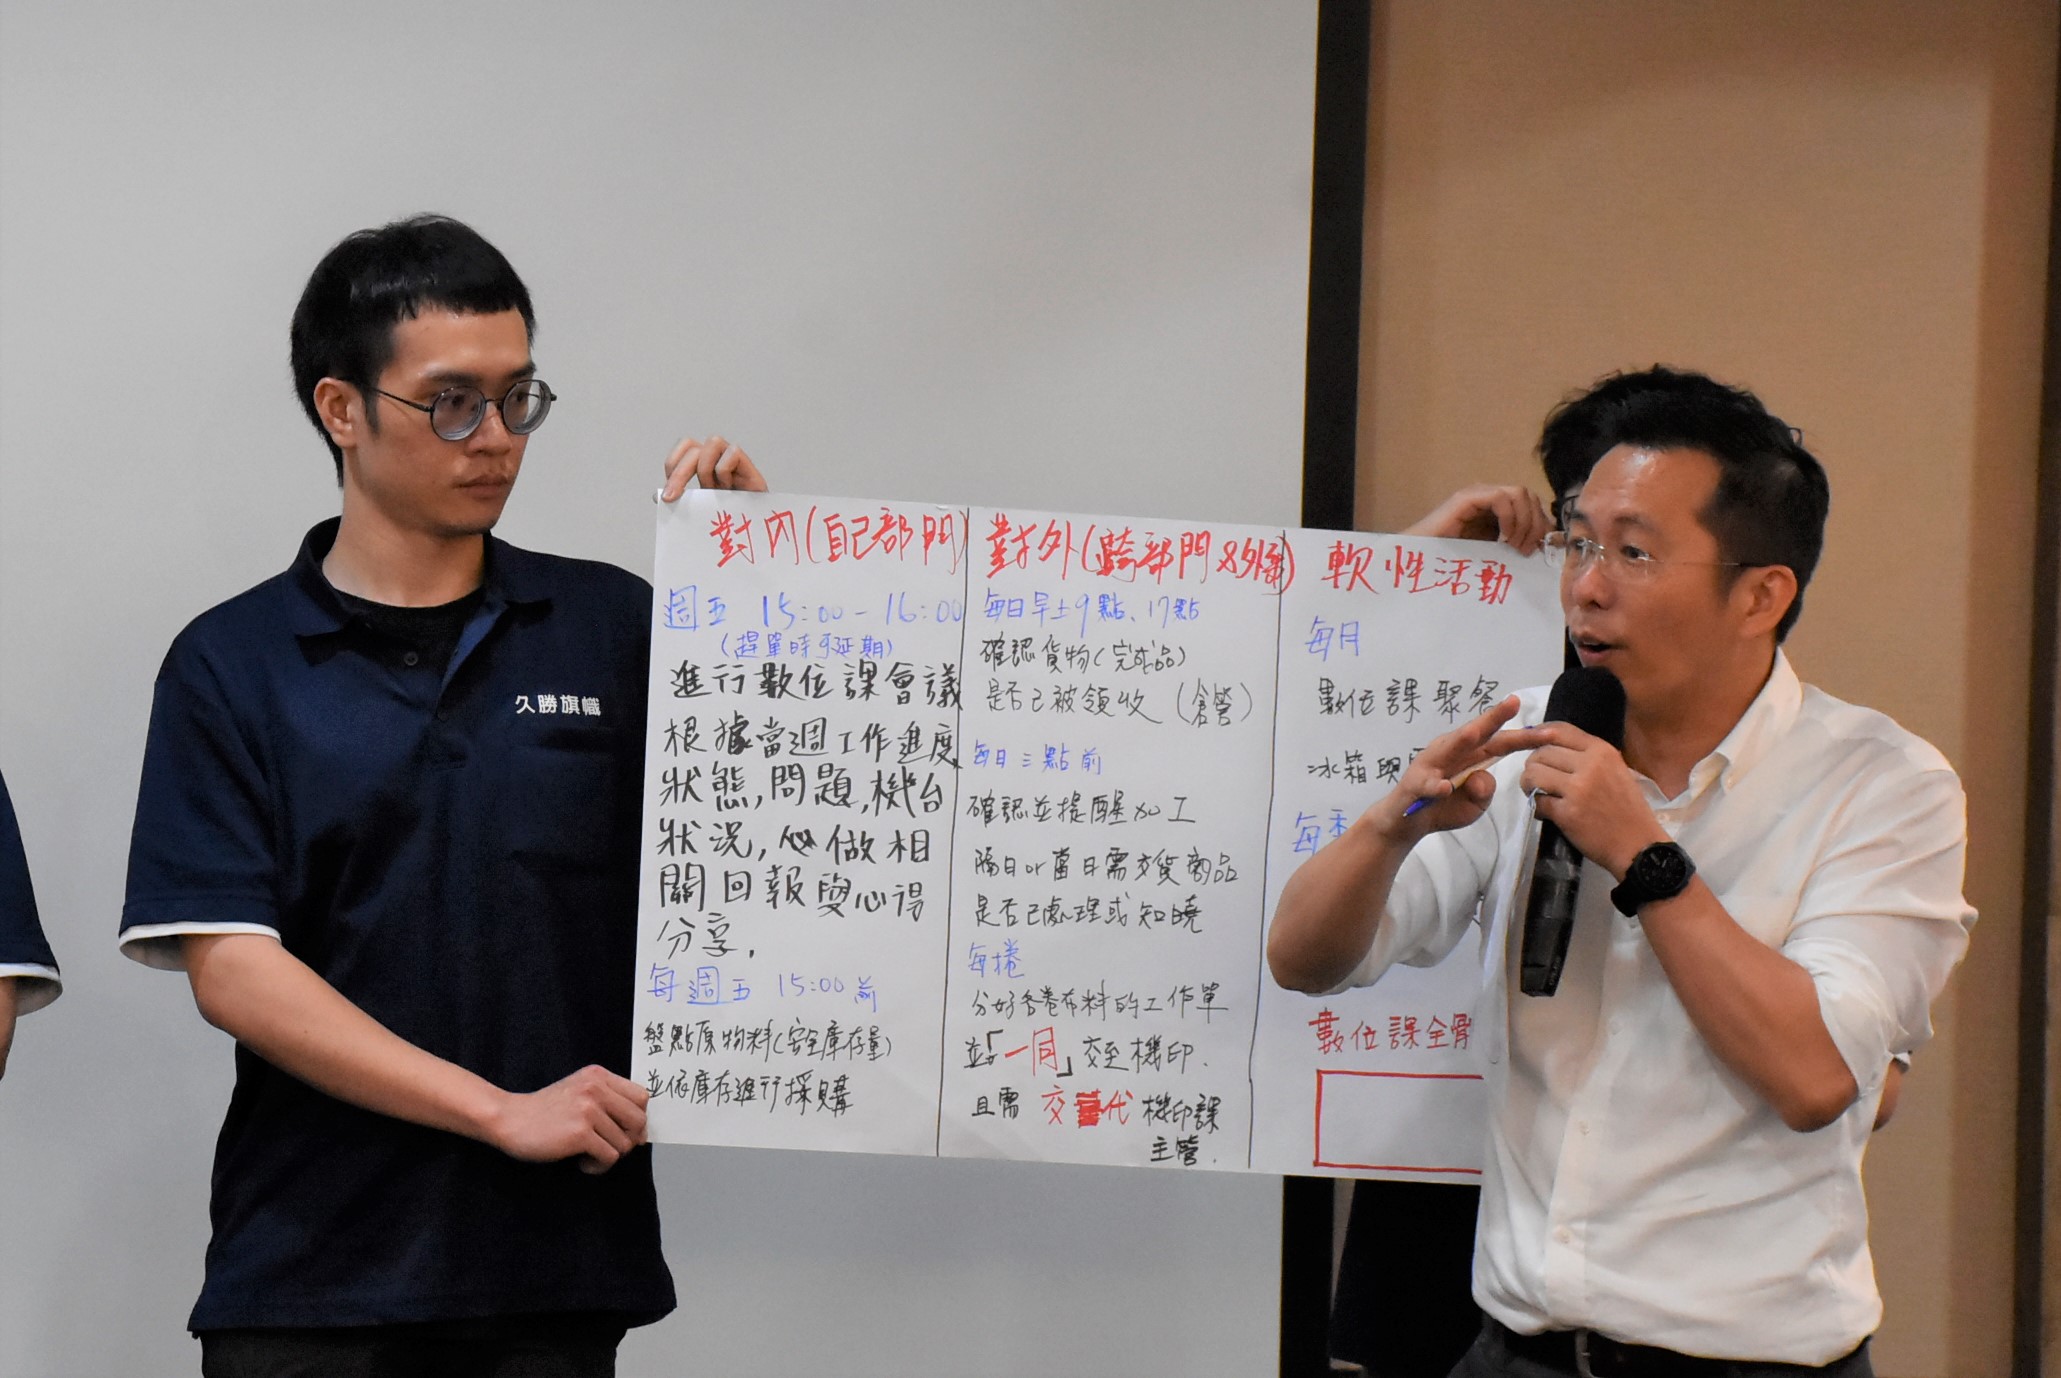 久勝旗幟
對內(自己部門)
週五 15:00-16:00
(趕單時可延期)
進行數位課會議
根據當週工作進度
狀態,問題,機台
狀況,必做相
關回報與心得
分享.
每週五 15:00前
盤點原物料(安全庫存量)
並依庫存進行採購
對外(跨部門&外部)
每日早上9點、17點
確認貨物(完成品)
是否已被領收(倉管)
每日三點前
確認並提醒加工
隔日or當日需交貨商品
是否已處理或知曉
每捲
分好各卷布料的工作單
並「一同」交至機印.
且需 交代 機印課
主管.
軟性活動
每月
數位課聚餐
冰箱與
每季
數位課全